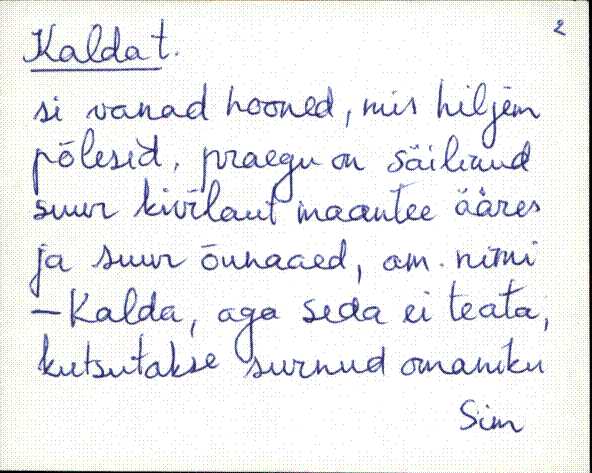 2
Kalda t.
si vanad hooned, mis hiljem
põlesid, praegu on säilinud
suur kivilaut maantee ääres
ja suur õunaaed, am. nimi
– Kalda, aga seda ei teata,
kutsutakse surnud omaniku
Sim